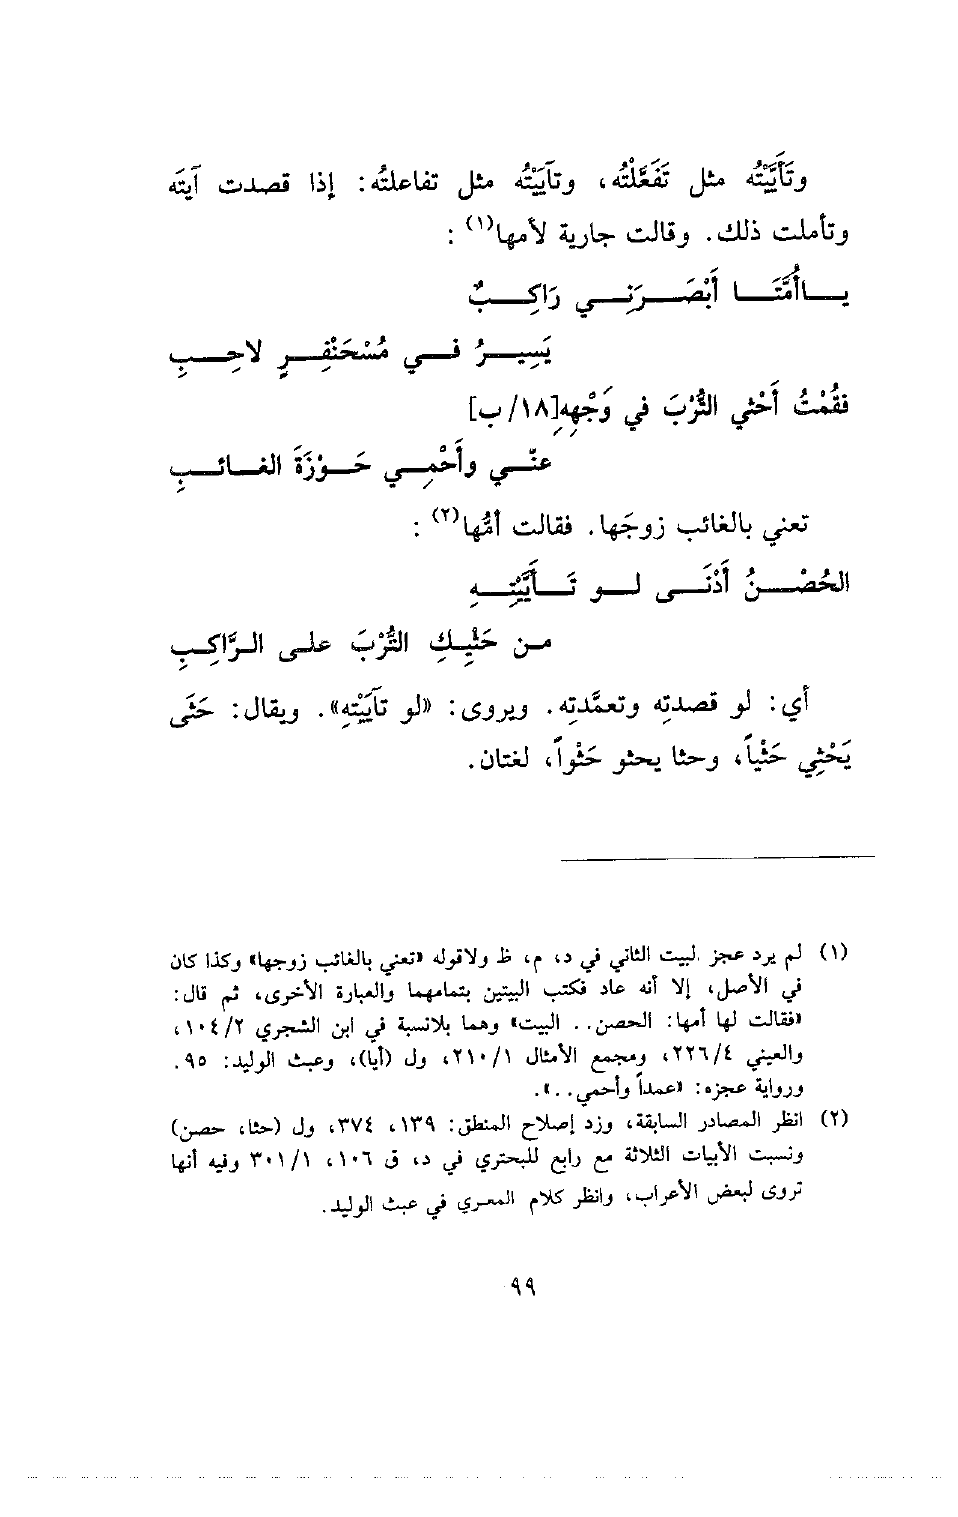 وتَأَيَّيْتُه مثل تَفَعَّلْتُه، وتآيَيْتُه مثل تفاعلتُه: إذا قصدت آيتَه
وتأملت ذلك. وقالت جارية لأمها(١) :
يـــاأُمَّتَـــا أَبْصَـــرَنِـــي رَاكِـــبٌ
يَسِيـــرُ فـــي مُسْحَنْفِـــرٍ لاحِـــبِ
فقُمْتُ أَحْثي التُّرْبَ في وَجْهِهِ[١٨/ب]
عنّـــي وأَحْمِـــي حَـــوْزَةَ الغـــائـــبِ
تعني بالغائب زوجَها. فقالت أمُّها(٢) :
الحُصْـــنُ أَدْنَـــى لـــو تَـــأَيَّيْتِـــهِ
مـن حَثْيِـكِ التُّرْبَ علـى الـرَّاكِـبِ
أي: لو قصدتِه وتعمَّدتِه. ويروى: «لو تآيَيْتِهِ». ويقال: حَثَى
يَحْثِي حَثْياً، وحثا يحثو حَثْواً، لغتان.
(١) لم يرد عجز البيت الثاني في د، م، ظ ولاقوله «تعني بالغائب زوجها» وكذا كان
في الأصل، إلا أنه عاد فكتب البيتين بتمامهما والعبارة الأخرى، ثم قال:
«فقالت لها أمها: الحصن.. البيت» وهما بلانسبة في ابن الشجري ١٠٤/٢،
والعيني ٢٢٦/٤، ومجمع الأمثال ٢١٠/١، ول (أيا)، وعبث الوليد: ٩٥.
ورواية عجزه: «عمداً وأحمي..».
(٢) انظر المصادر السابقة، وزد إصلاح المنطق: ١٣٩، ٣٧٤، ول (حثا، حصن)
ونسبت الأبيات الثلاثة مع رابع للبحتري في د، ق ١٠٦، ٣٠١/١ وفيه أنها
تروى لبعض الأعراب، وانظر كلام المعري في عبث الوليد.
٩٩